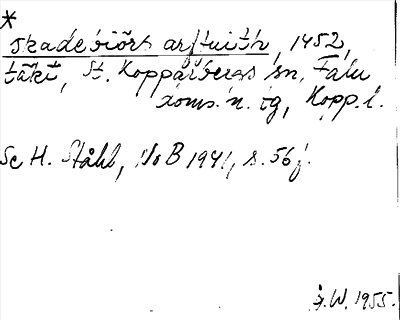 *
skadebiörs arffuith, 1452,
täkt, St. Kopparbergs sn, Falu
doms. n. tg, Kopp. l.
Se H. Ståhl, NoB 1941, s. 56 f.
G. W. 1955.